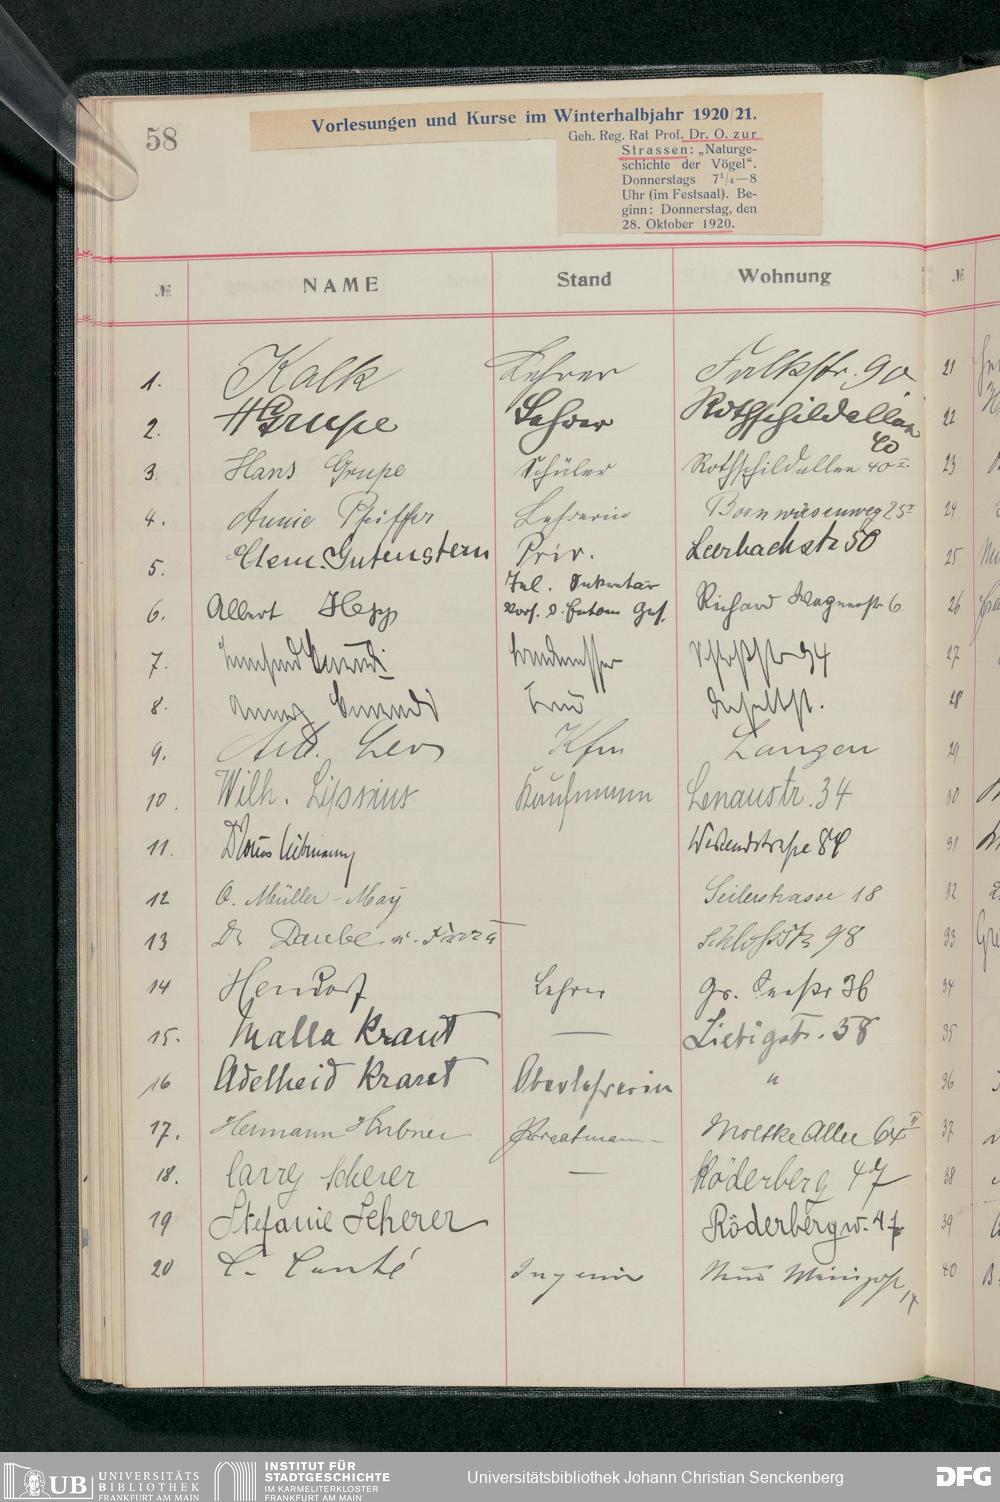 58
Vorlesungen und Kurse im Winterhalbjahr 1920/21.
Geh. Reg. Rat Prof. Dr. O. zur
Strassen: „Naturge-
schichte der Vögel“.
Donnerstags 7¹/₄—8
Uhr (im Festsaal). Be-
ginn: Donnerstag, den
28. Oktober 1920.
№ NAME Stand Wohnung №
1. Kalk Lehrer Falkstr. 90 21
2. H Grupe Lehrer Rothschildallee 40 22
3. Hans Grupe Schüler Rothschildallee 40 II. 23
4. Annie Pfeiffer Lehrerin Bornwiesenweg 25 I 24
5. Clem. Gutenstern Priv. Leerbachstr 50 25
6. Albert Hepp Tel. Sekretär Vors. d. Entom Ges. Richard Wagnerstr 6 26
7. Landmesser Schloßstr 94 27
8. Frau daselbst. 28
9. Leo Kfm Langen 29
10. Wilh. Lipsius Kaufmann Lenaustr. 34 30
11. Liebmann 84 31
12 O. Müller-May Seilerstrasse 18 32
13 Dr Daube u. Schloßstr 98 33
14 Lehrer Gr. 36 34
15. Malla Kraut — Liebigstr. 58 35
16 Adelheid Kraut Oberlehrerin " 36
17. Hermann Hübner Privatmann Moltke Allee 64 II 37
18. Carry Scherer — Röderberg 47 38
19 Stefanie Scherer Röderbergw. 47 39
20 C. Conté 14 40
UB UNIVERSITÄTS
BIBLIOTHEK
FRANKFURT AM MAIN
INSTITUT FÜR
STADTGESCHICHTE
IM KARMELITERKLOSTER
FRANKFURT AM MAIN
Universitätsbibliothek Johann Christian Senckenberg
DFG